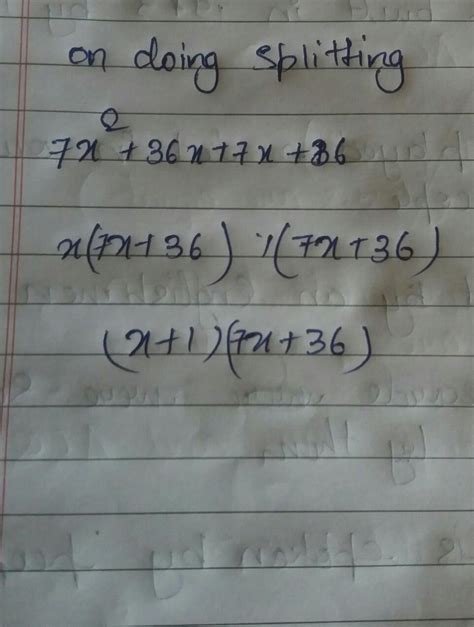 on doing splitting
7x² + 36x + 7x + 36
x(7x + 36) 1(7x + 36)
(x + 1)(7x + 36)